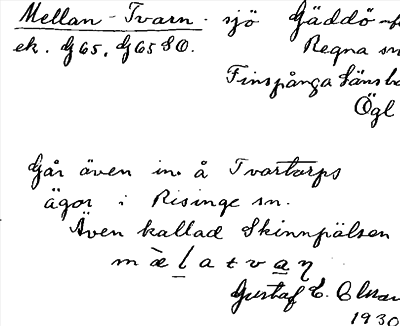 Mellan-Tvarn. sjö Gäddö
ek. G65, G65 SO. Regna sn
Finspånga läns
Ögl
Går även in å Tvartorps
ägor i Risinge sn.
Även kallad Skinnpälsen
m æ̀ l a t v a ŋ
Gustaf E. Olsson
1930